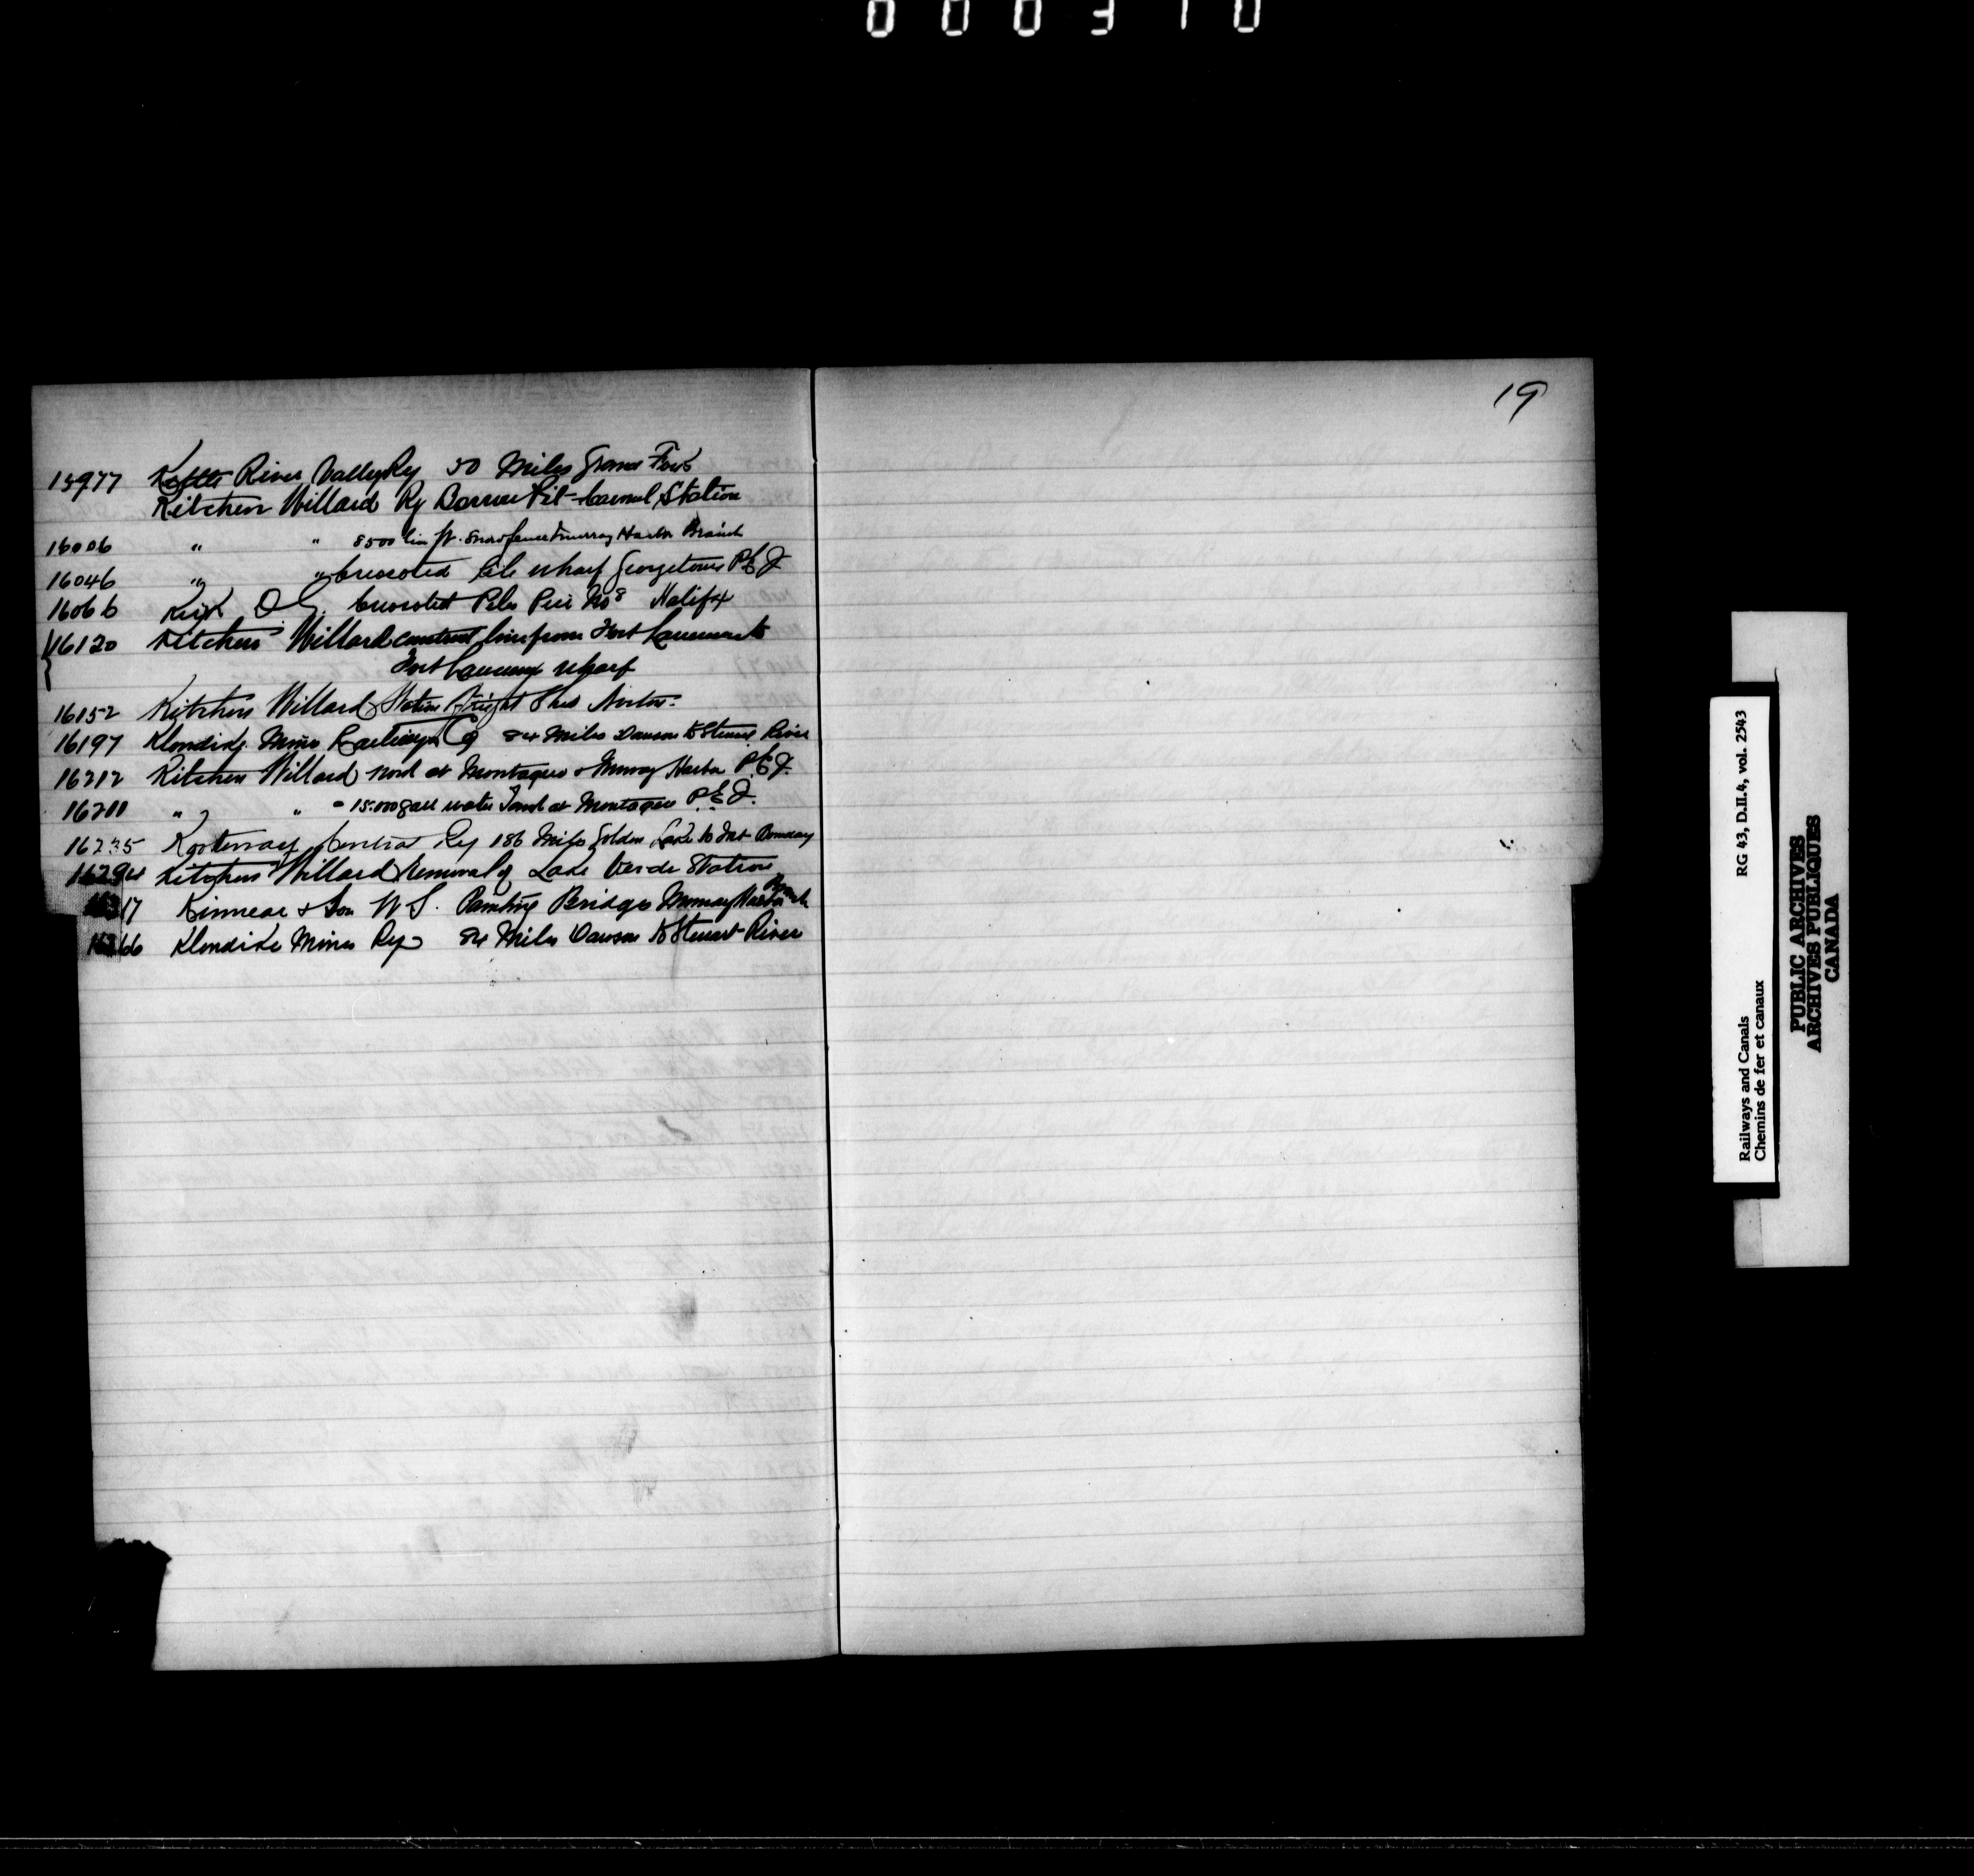 000310
19
15977 Kettle River Valley Ry 50 Miles Grand Forks
Kitchen Willard Ry Borrow Pit Carmel Station
16006 " " 8500 lin ft. Snow fence Murray Harbor Branch
16046 " " Creosoted Pile wharf Georgetown P.E.J
16066 Kirk D. G. Creosoted Piles Pier No 8 Halifax
16120 Kitchen Willard construct line from
wharf
16152 Kitchen Willard Station Freight Shed Norton.
16197 Klondike Mines Railways Co 84 Miles Dawson to Stewart River
16212 Kitchen Willard at Montague & Murray Harbor P.E.J.
16211 " " = 15.000 gall water Tank at Montague P.E.J.
16235 Kootenay Central Ry 186 Miles Golden to
16294 Kitchen Willard Removal of Lake Verde Station
17 Kinnear & Son W S. Painting Bridges Murray Harbor Branch
66 Klondike Mines Ry 84 Miles Dawson to Stewart River
Railways and Canals RG 43, D.II.4, vol. 2543
Chemins de fer et canaux
PUBLIC ARCHIVES
ARCHIVES PUBLIQUES
CANADA